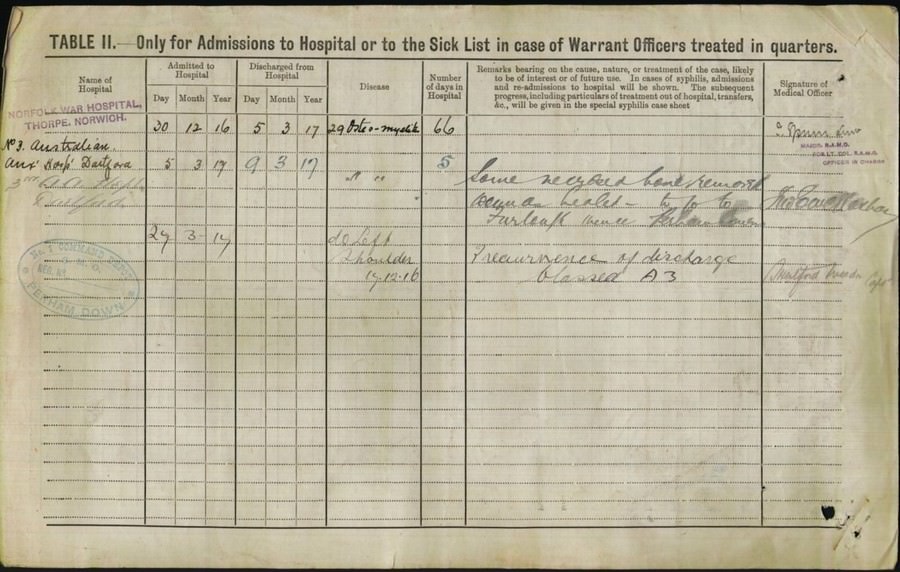 TABLE II.—Only for Admissions to Hospital or to the Sick List in case of Warrant Officers treated in quarters.
Name of Hospital
Admitted to Hospital
Discharged from Hospital
Disease
Number of days in Hospital
Remarks bearing on the cause, nature, or treatment of the case, likely
to be of interest or of future use. In cases of syphilis, admissions
and re-admissions to hospital will be shown. The subsequent
progress, including particulars of treatment out of hospital, transfers,
&c., will be given in the special syphilis case sheet
Signature of Medical Officer
Day Month Year Day Month Year
NORFOLK WAR HOSPITAL,
THORPE, NORWICH.
30 12 16 5 3 17 29 Osteo-myelitis 66
MAJOR. R.A.M.C.
FOR LT. COL. R.A.M.C.
OFFICER IN CHARGE
No 3. Australian.
Aux' Hosp' Dartford 5 3 17 9 3 17 " " 5
3rd A.A. Hosp.
Dartford
Some necrosed bone removed
healed - to go to
Furlough thence
27 3 - 17 do Left
Shoulder
17.12.16
? recurrence of discharge
Classed A3
No. 1 COMMAND DEPOT
PERHAM DOWN